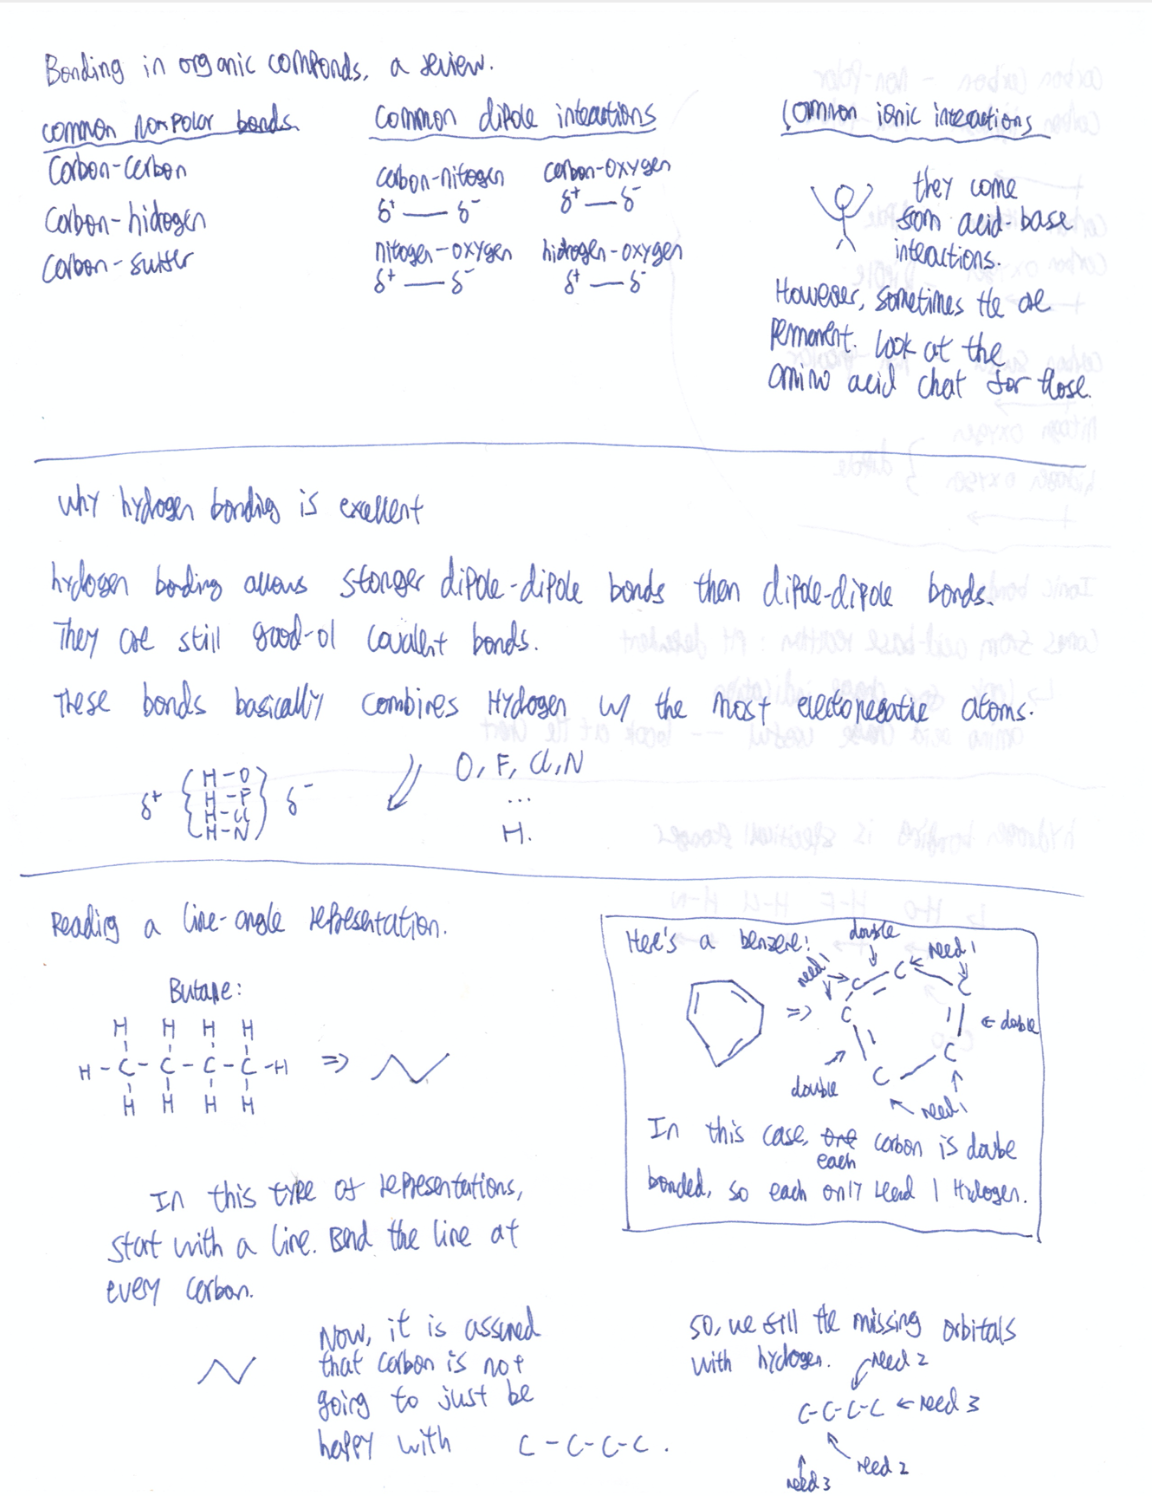 Bonding in organic componds, a review.
common nonpolar bonds.
Carbon-Carbon
Carbon-hidogen
Carbon-sulfer
Common dipole interactions
carbon-nitogen carbon-oxygen
δ+ — δ- δ+ — δ-
nitogen-oxygen hidrogen-oxygen
δ+ — δ- δ+ — δ-
Common ionic interactions
they come
from acid-base
interactions.
However, sometimes the are
permanent. Look at the
amino acid chat for those.
Why hydrogen bonding is excellent
hydogen bonding allows stonger dipole-dipole bonds then dipole-dipole bonds.
They are still good-ol covalent bonds.
These bonds basically combines Hydrogen w/ the most electonegative atoms.
O, F, Cl, N
...
H.
δ+ { H-O } δ-
H-F
H-Cl
H-N
Reading a line-angle representation.
Butane:
H H H H
H-C-C-C-C-H =>
H H H H
In this type of representations,
start with a line. Bend the line at
every carbon.
Now, it is assumed
that carbon is not
going to just be
happy with C-C-C-C.
So, we fill the missing orbitals
with hydogen. need 2
C-C-C-C ← need 3
need 2
need 3
Here's a benzene:
double
need 1
need 1
C C
C
C
=>
double
C
C
double
need 1
In this case, one each carbon is double
bonded, so each only need 1 Hydogen.